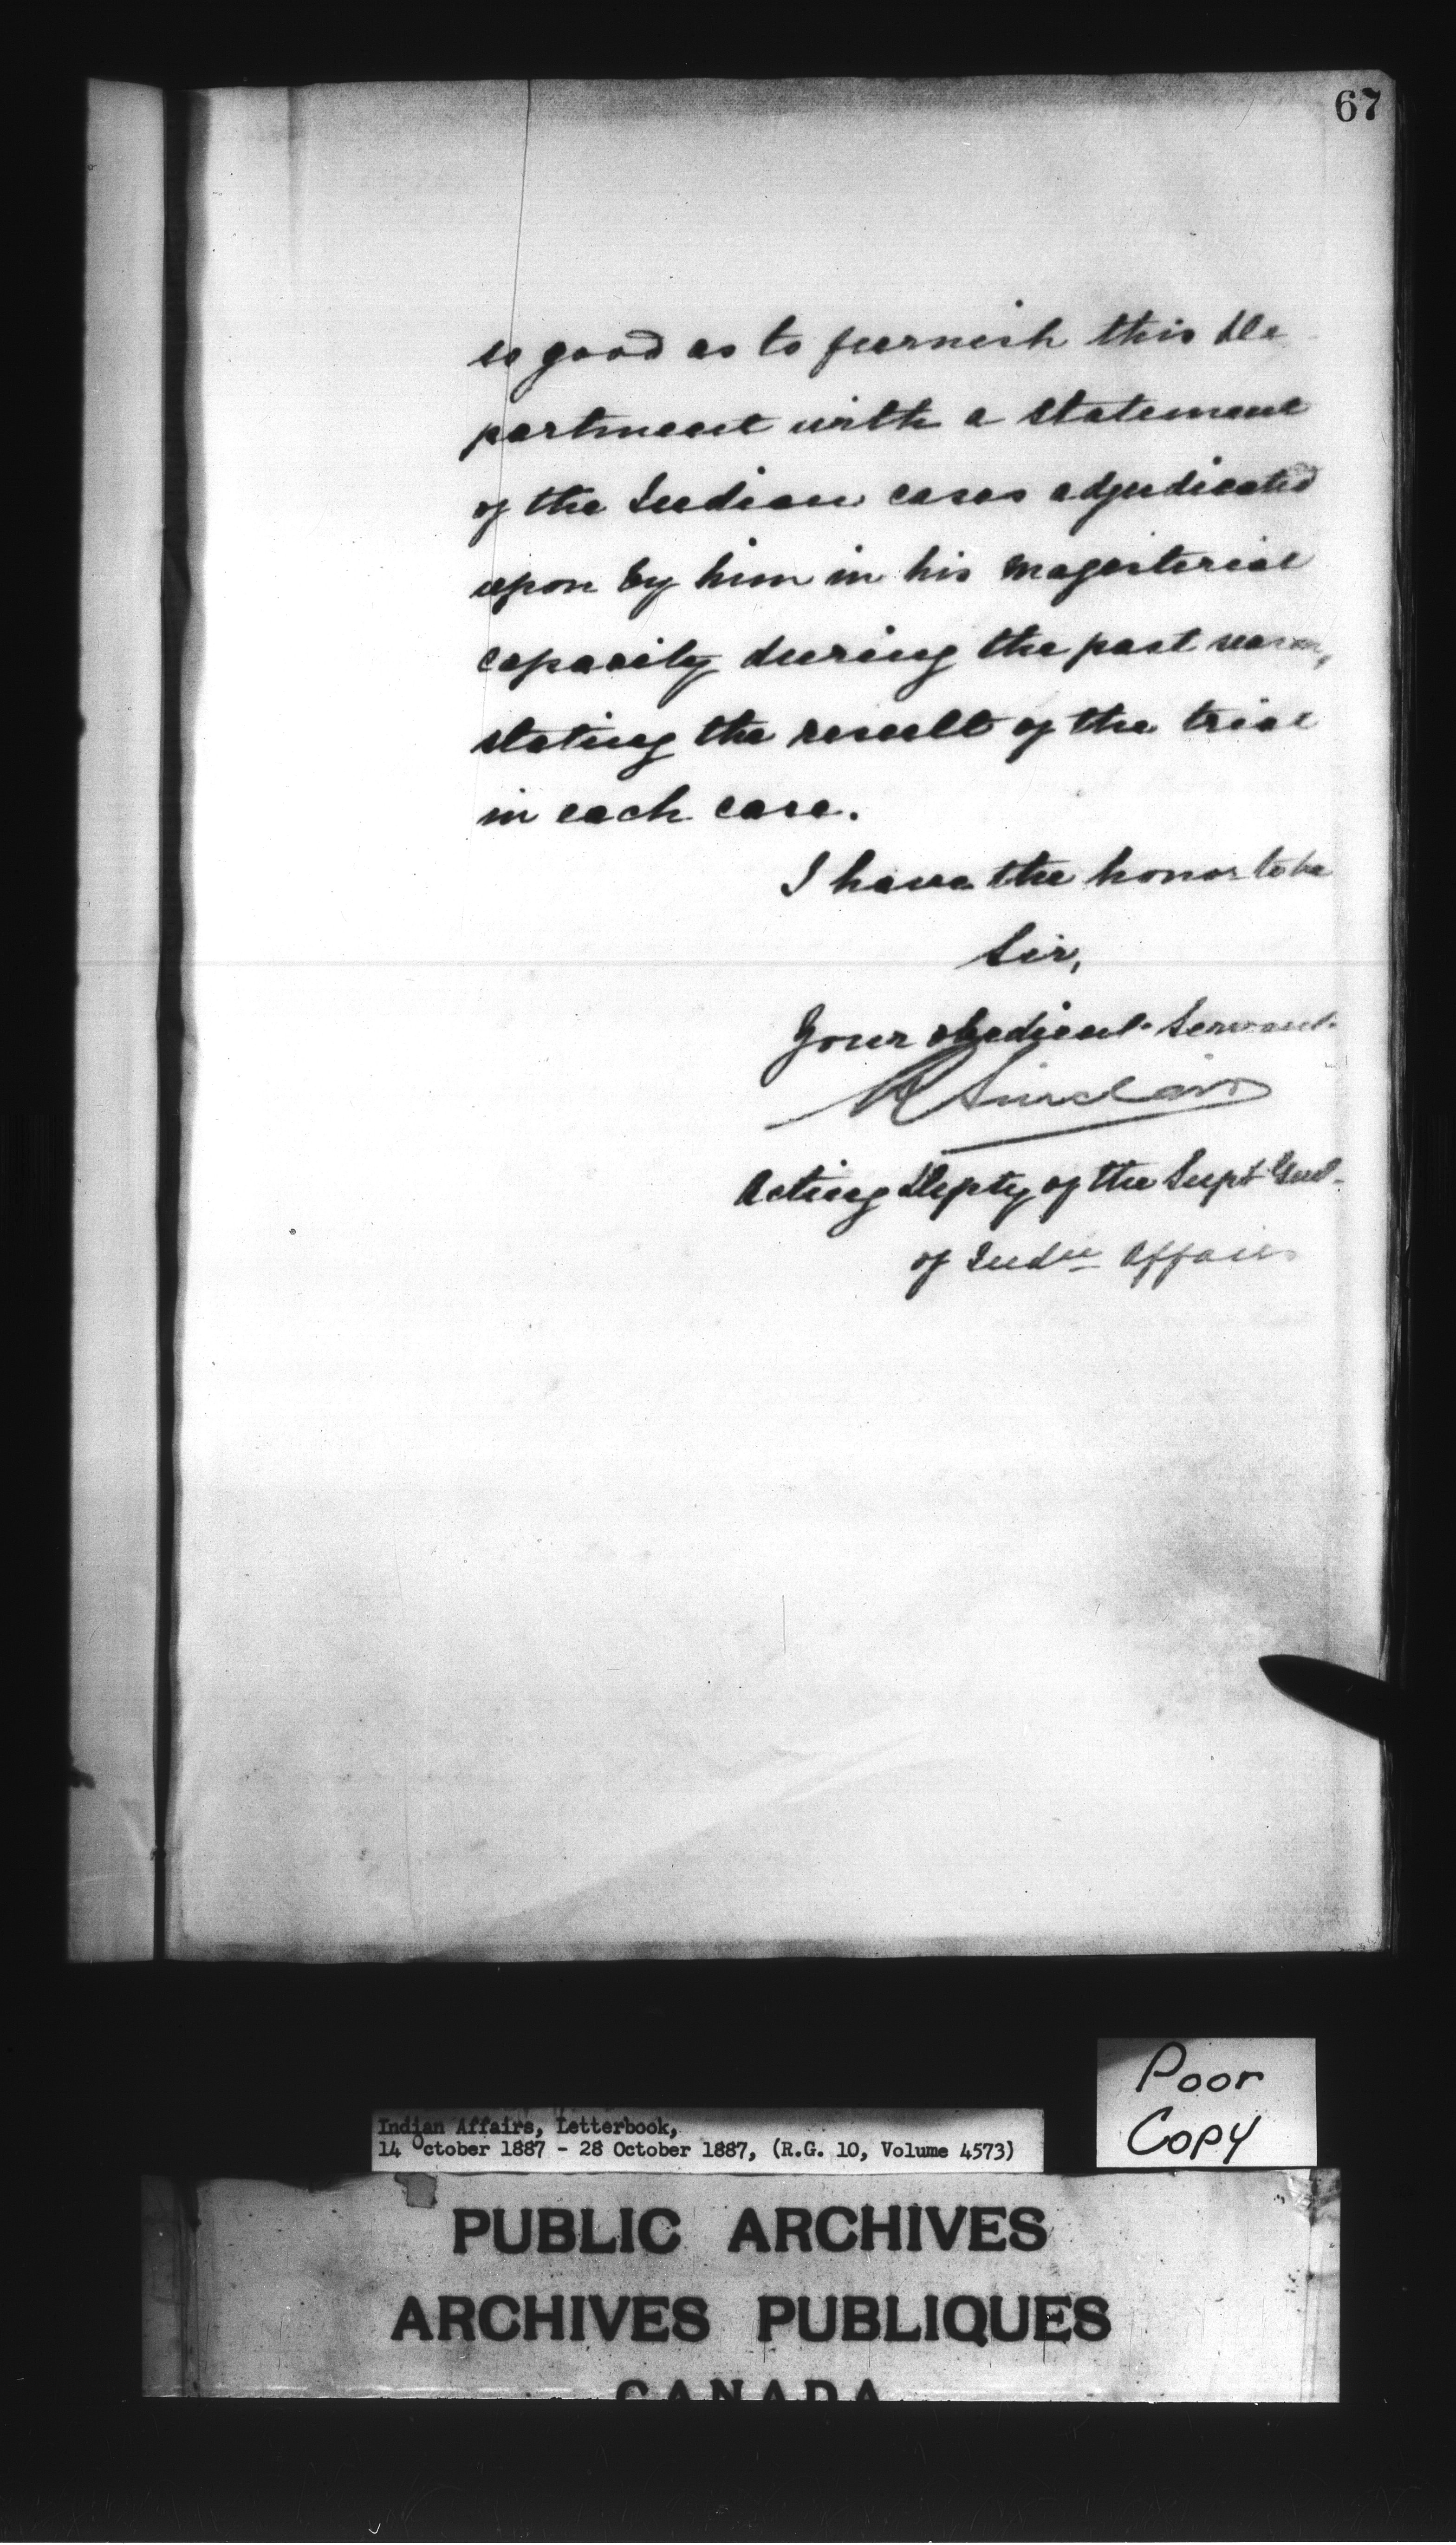 67
so good as to furnish this De-
partment with a statement
of the Indian cases adjudicated
upon by him in his magisterial
capacity during the past
stating the result of the trial
in each case.
I have the honor to be
Sir,
Your obedient Servant
R Sinclair
Acting Depty of the Supt Genl.
of Indn Affairs
Poor
Copy
Indian Affairs, Letterbook,
14 October 1887 - 28 October 1887, (R.G. 10, Volume 4573)
PUBLIC ARCHIVES
ARCHIVES PUBLIQUES
CANADA